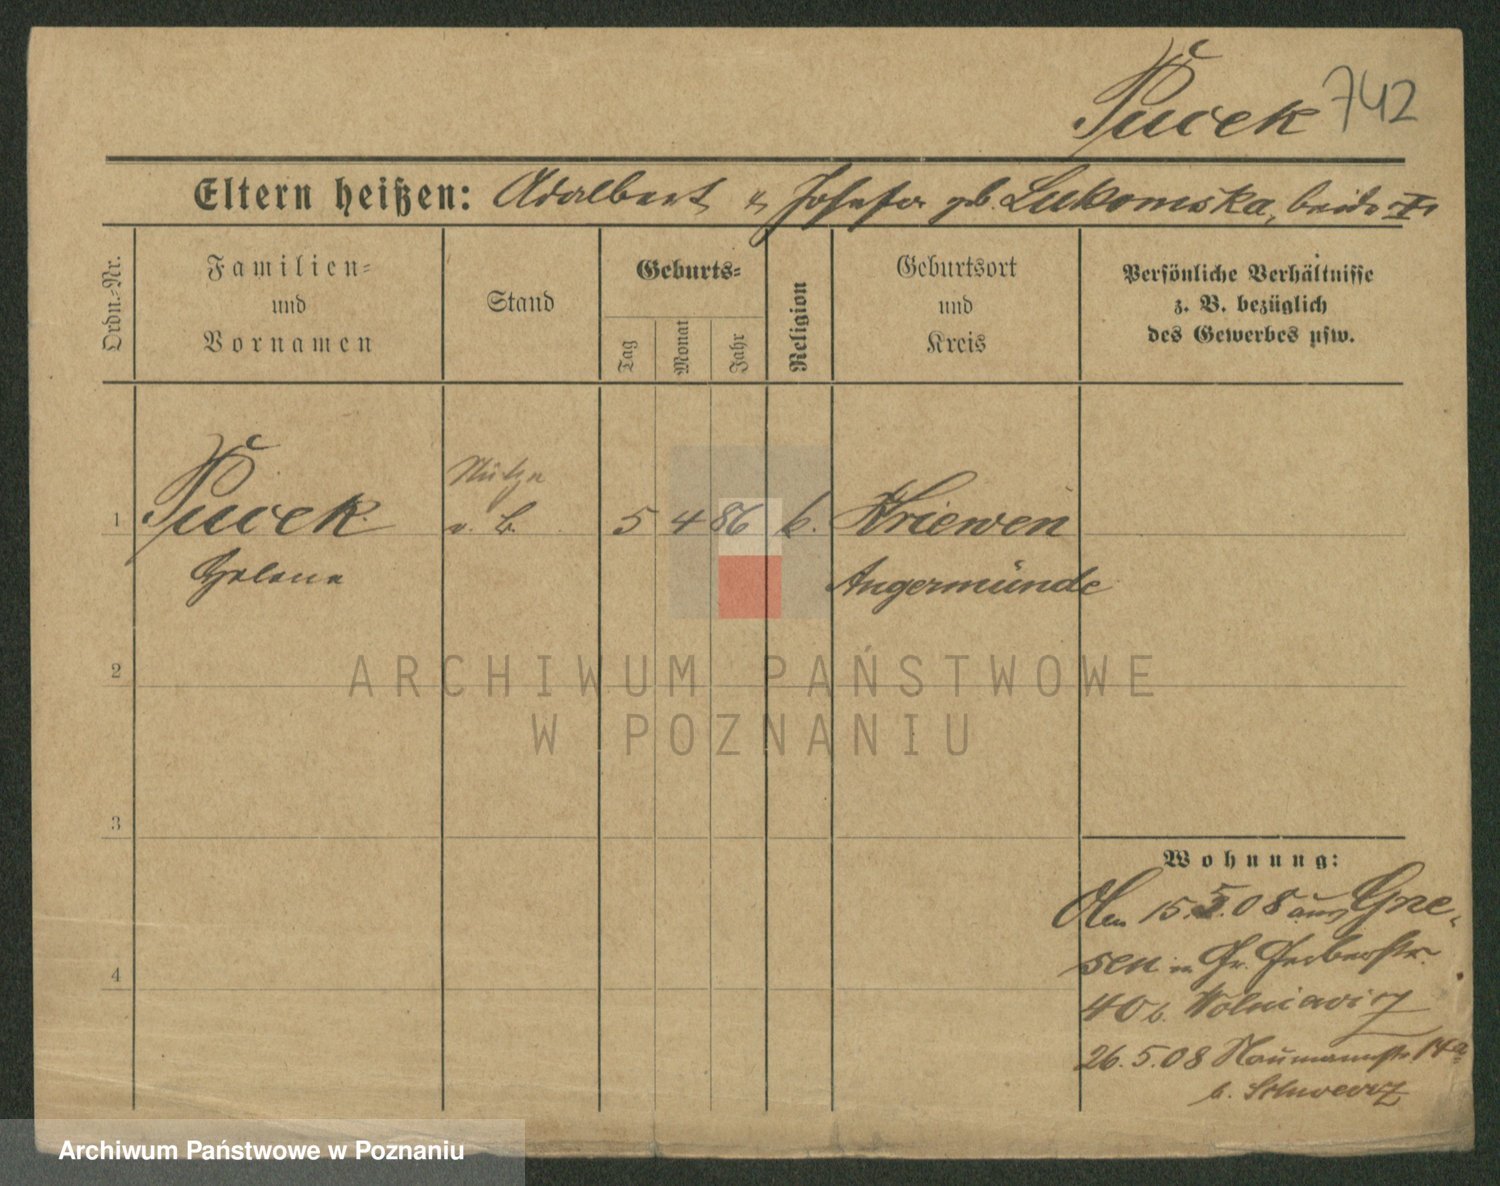 Pucek 742
Eltern heißen: Adalbert u Josefa geb. Lukomska, beide †
Ordn.-Nr.
Familien-
und
Vornamen
Stand
Geburts-
Tag
Monat
Jahr
Religion
Geburtsort
und
Kreis
Persönliche Verhältnisse
z. B. bezüglich
des Gewerbes usw.
Stütze
1 Pucek v. L. 5 4 86 k. Kriewen
Helene Angermünde
2
ARCHIWUM PAŃSTWOWE
W POZNANIU
3
Wohnung:
15.5.08 aus Gne-
sen n Gr. Gerberstr.
4
40 b.
26.5.08 Naumannstr. 14a
b.
Archiwum Państwowe w Poznaniu